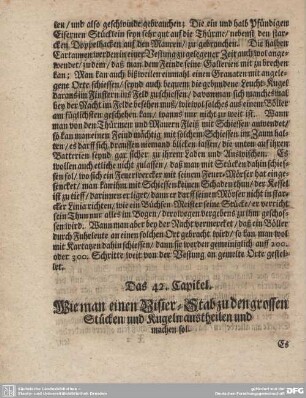 ten / und also geschwinde gebrauchen; Die ein und halb Pfündigen
Eisernen Stücklein seyn sehr gut auf die Thürne / nebenst den star-
cken Doppelhacken auf den Mauren / zu gebrauchen. Die halben
Cartaunen werden in einer Vestung zu gelegener Zeit auch wol ange-
wendet / indem / daß man dem Feinde seine Gallerien mit zu brechen
kan; Man kan auch bißweilen einmahl einen Granaten mit angele-
gene Orte schiessen / seynd auch bequem die gebundene Leucht-Kugel
daraus im Finstern ins Feld zuschiessen / davon man sich manchesmal
bey der Nacht im Felde besehen muß / wiewol solches aus einem Böller
am füglichsten geschehen kan / wanns nur nicht zu weit ist. Wann
man von den Thürnen und Mauren Fleiß mit Schiessen anwendet /
so kan man einen Feind mächtig mit solchem Schiessen im Zaum hal-
ten / es darff sich draussen niemand blicken lassen / die unten auf ihren
Batterien seynd gar sicher zu ihrem Laden und Auswischen. Es
wollen auch etliche nicht zulassen / daß man mit Stücken dahin schies-
sen sol / wo sich ein Feuerwercker mit seinem Feuer-Mörser hat einge-
sencket / man kan ihm mit Schiessen keinen Schaden thun / der Kessel
ist zu tieff / darinnen er liget / kan er darff seinen Mörser nicht in star-
cker Linia richten / wie ein Büchsen-Meister seine Stücke / er verricht
sein Thun nur alles im Bogen / derowegen vergebens zu ihm geschos-
sen wird. Wann man aber bey der Nacht vermercket / daß ein Böller
durch Fuhrleute an einen solchen Ort gebracht wird / so kan man wol
mit Kartatzen dahin schiessen / dann sie werden gemeiniglich auf 200.
oder 300. Schritte weit von der Vestung an gewisse Orte gestel-
let.
Das 42. Capitel.
Wie man einen Visier-Stab zu den grossen
Stücken und Kugeln austheilen und
machen sol.
Es